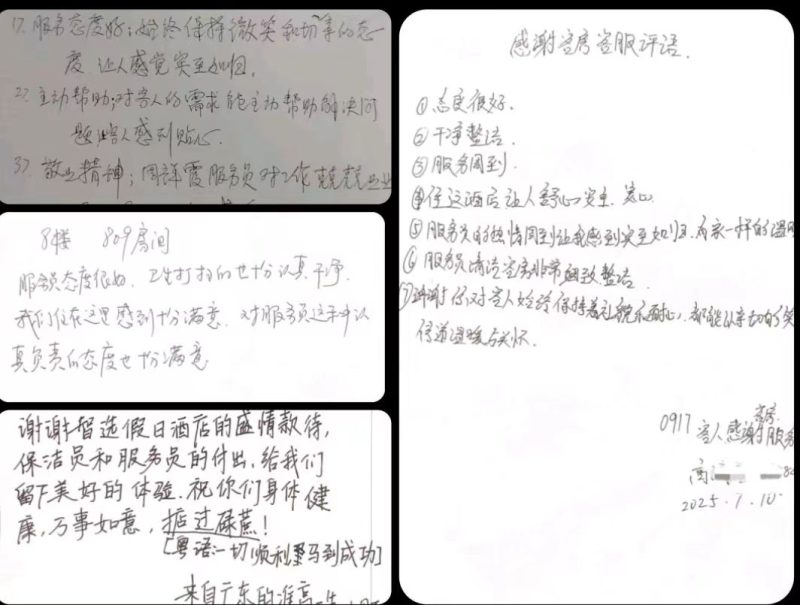 17. 服务态度好；始终保持微笑和切事的态
度 让人感觉宾至如归.
27. 主动帮助；对客人的需求能主动帮助解决问
题 让客人感到贴心.
37. 敬业精神；周详霞服务员对工作兢兢业业
8楼 809房间
服务员态度很好，卫生打扫的也十份认真干净.
我们住在这里感到十分满意. 对服务员这种认
真负责的态度也十分满意
谢谢智选假日酒店的盛情款待,
保洁员和服务员的付出，给我们
留下美好的体验.祝你们身体健
康,万事如意，掂过碌蔗！
[粤语:一切顺利马到成功]
来自广东的准高
感谢客房客服评语.
①态度很好.
②干净整洁.
③服务周到.
④住这酒店让人舒心 安全. 宽心
⑤服务员的热情周到让我感到宾至如归.有家一样的温
⑥服务员清洁客房非常细致整洁.
⑦谢谢你对客人始终保持着礼貌和耐心，都能以亲切的笑
传递温暖与关怀.
0917 客人感谢客房服务
高
2025.1.10.